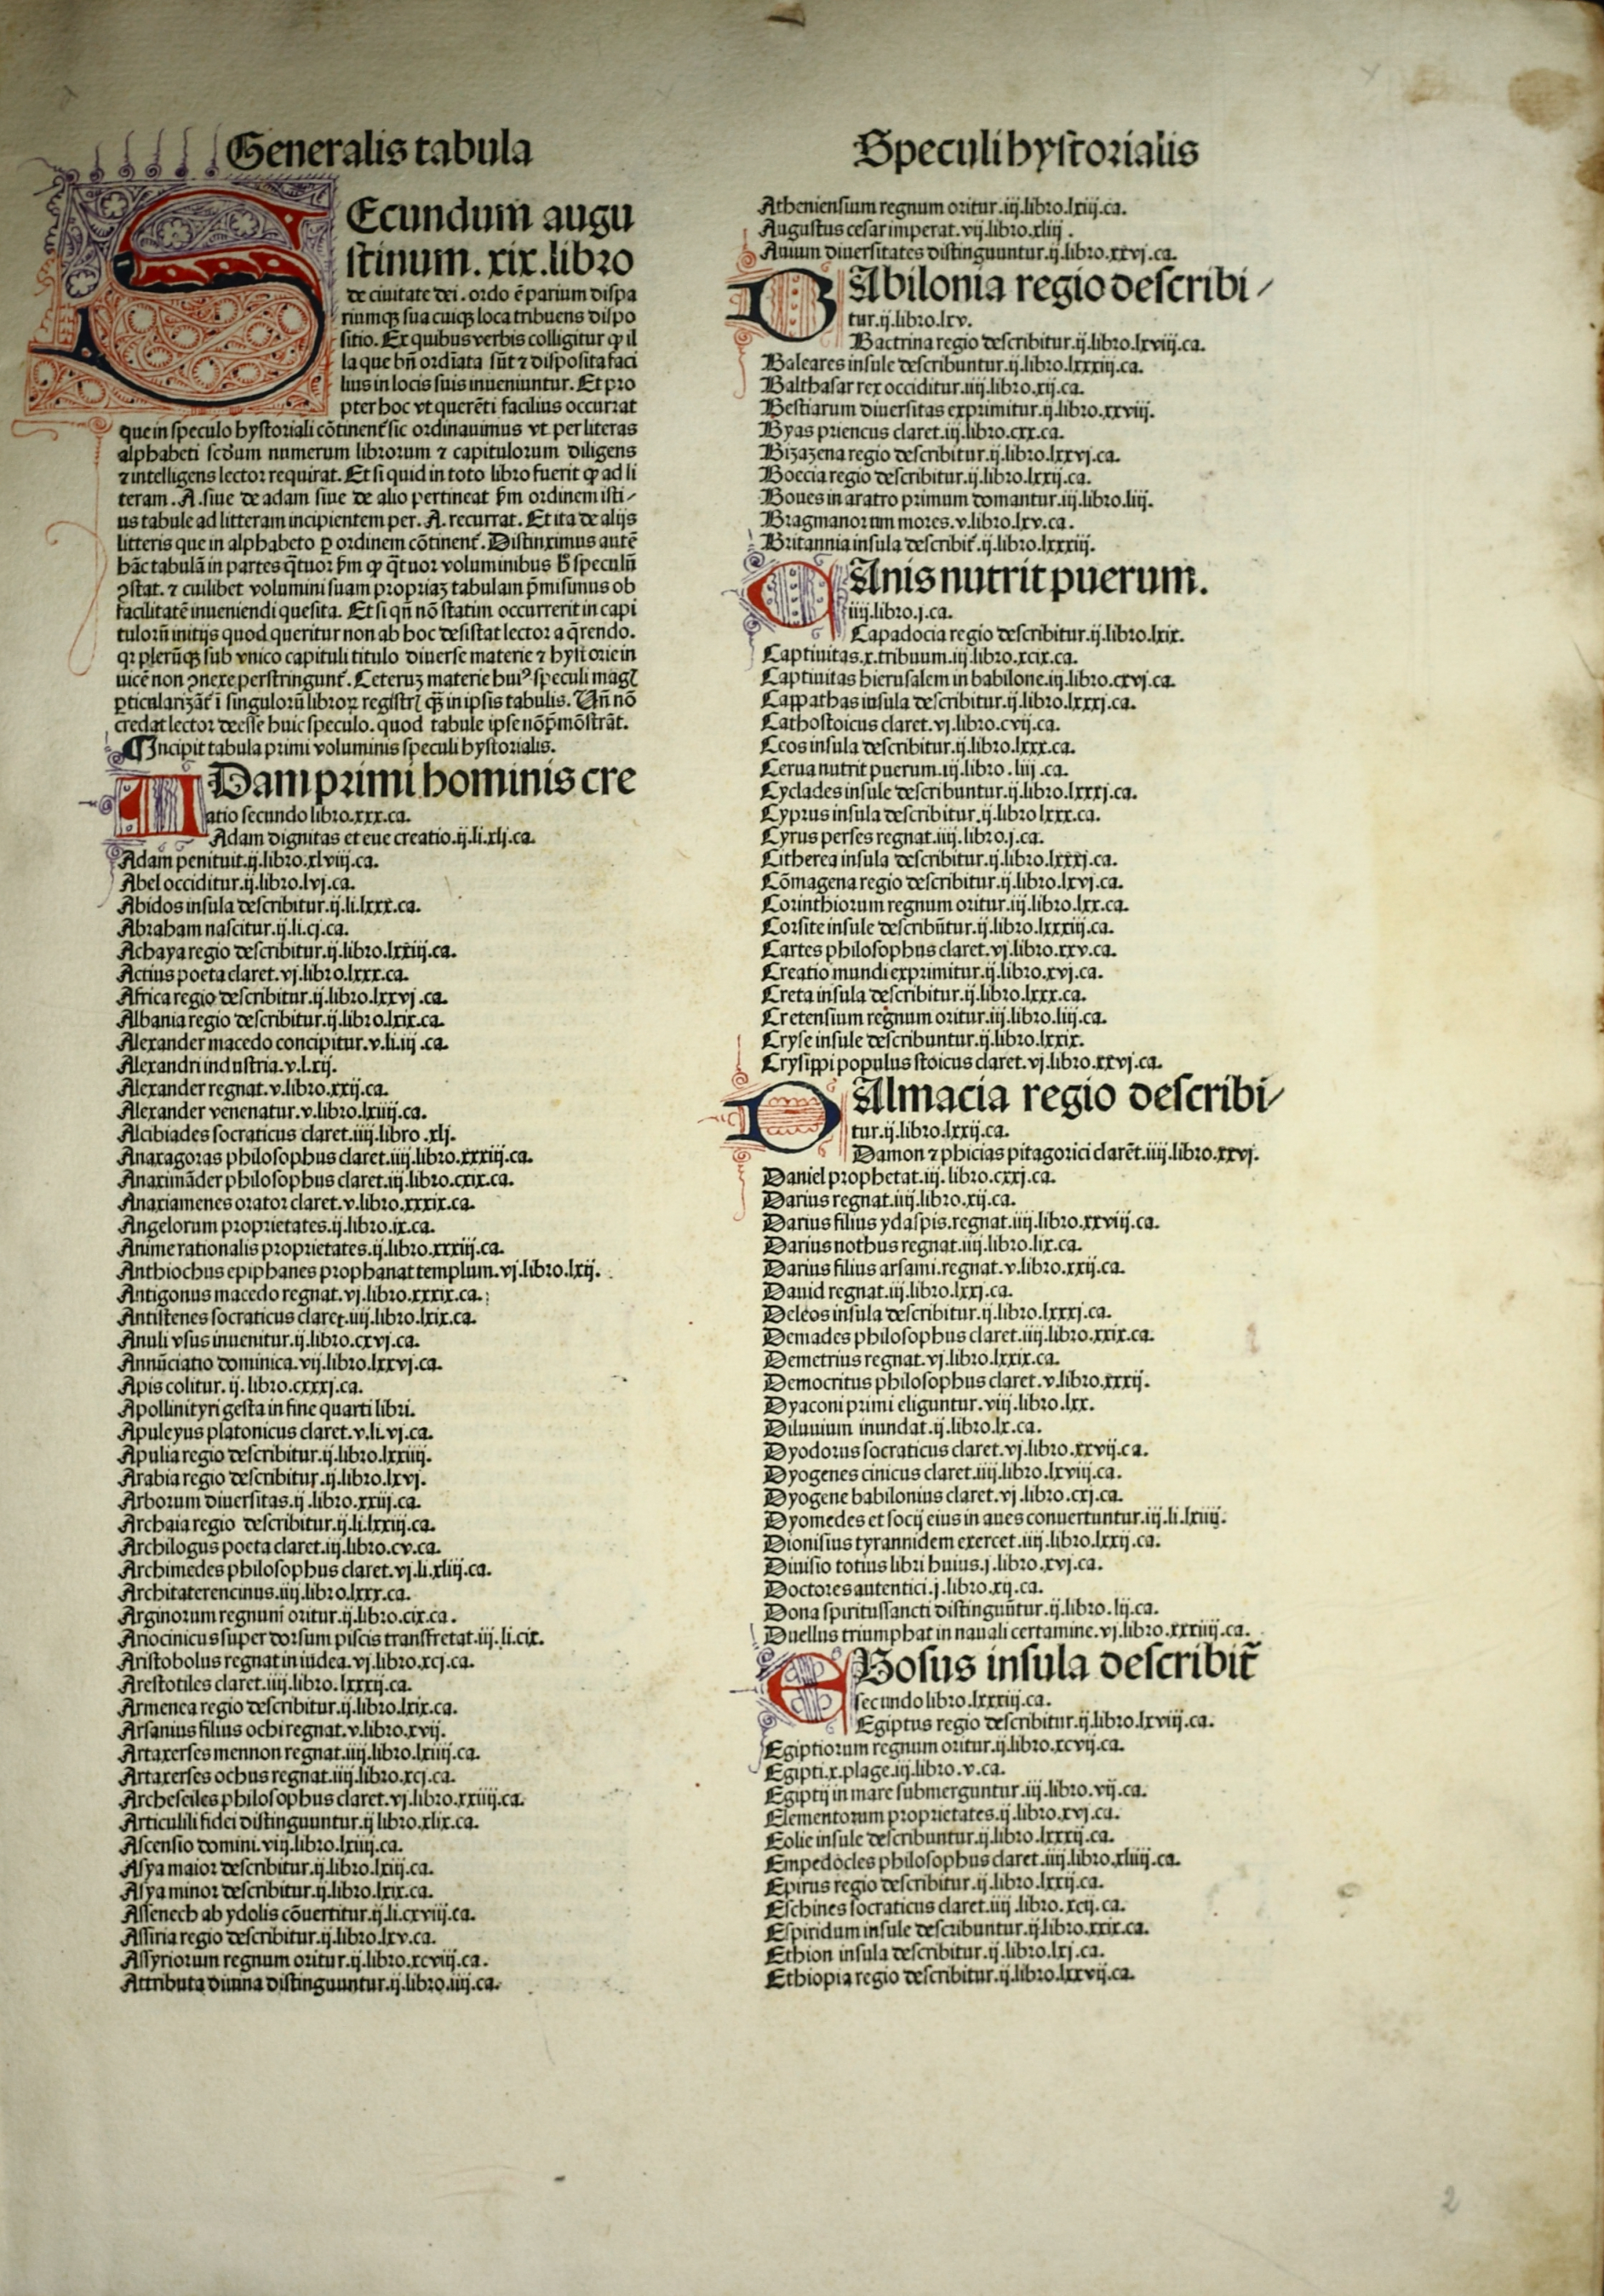 Generalis tabula
Speculi hystorialis
SEcundum augu
stinum. xix. libro
de ciuitate dei. ordo ē parium dispa
riumqꝫ sua cuiqꝫ loca tribuens dispo
sitio. Ex quibus verbis colligitur ꝙ il
la que bn̄ ordīata sūt ⁊ disposita faci
lius in locis suis inueniuntur. Et pro
pter hoc vt querēti facilius occurrat
que in speculo hystoriali cōtinent᷑ sic ordinauimus vt per literas
alphabeti scd̄um numerum librorum ⁊ capitulorum diligens
⁊ intelligens lector requirat. Et si quid in toto libro fuerit ꝙ ad li
teram. A. siue de adam siue de alio pertineat p̄m ordinem isti/
us tabule ad litteram incipientem per. A. recurrat. Et ita de alijs
litteris que in alphabeto ꝑ ordinem cōtinent᷑. Distinximus autē
hāc tabulā in partes q̄tuor p̄m ꝙ q̄tuor voluminibus h̄ speculū
ꝯstat. ⁊ cuilibet volumini suam propriaꝫ tabulam p̄misimus ob
facilitatē inueniendi quesita. Et si qn̄ nō statim occurrerit in capi
tulorū initijs quod queritur non ab hoc desistat lector a q̄rendo.
qꝛ plerūqꝫ sub vnico capituli titulo diuerse materie ⁊ hystorie in
uicē non ꝯnexe perstringunt᷑. Ceteruꝫ materie huiꝰ speculi magꝭ
ꝑticularizāt᷑ ī singulorū libroꝝ registrꝭ qꝫ in ipsis tabulis. Vn̄ nō
credat lector deesse huic speculo. quod tabule ipse nō p̄mōstrāt.
¶ Incipit tabula primi voluminis speculi hystorialis.
ADam primi hominis cre
atio secundo libro.xxx.ca.
Adam dignitas et eue creatio.ij.li.xlj.ca.
Adam penituit.ij.libro.xlviij.ca.
Abel occiditur.ij.libro.lvj.ca.
Abidos insula describitur.ij.li.lxxx.ca.
Abraham nascitur.ij.li.cj.ca.
Achaya regio describitur.ij.libro.lxxiij.ca.
Actius poeta claret.vj.libro.lxxx.ca.
Africa regio describitur.ij.libro.lxxvj.ca.
Albania regio describitur.ij.libro.lxix.ca.
Alexander macedo concipitur.v.li.iij.ca.
Alexandri industria.v.l.xij.
Alexander regnat.v.libro.xxij.ca.
Alexander venenatur.v.libro.lxiiij.ca.
Alcibiades socraticus claret.iiij.libro.xlj.
Anaxagoras philosophus claret.iiij.libro.xxxiij.ca.
Anaximāder philosophus claret.iij.libro.cxix.ca.
Anaxiamenes orator claret.v.libro.xxxix.ca.
Angelorum proprietates.ij.libro.ix.ca.
Anime rationalis proprietates.ij.libro.xxxiij.ca.
Anthiochus epiphanes prophanat templum.vj.libro.lxij.
Antigonus macedo regnat.vj.libro.xxxix.ca.
Antistenes socraticus claret.iiij.libro.lxix.ca.
Anuli vsus inuenitur.ij.libro.cxvj.ca.
Annūciatio dominica.vij.libro.lxxvj.ca.
Apis colitur.ij.libro.cxxxj.ca.
Apollini tyri gesta in fine quarti libri.
Apuleyus platonicus claret.v.li.vj.ca.
Apulia regio describitur.ij.libro.lxxiiij.
Arabia regio describitur.ij.libro.lxvj.
Arborum diuersitas.ij.libro.xxiij.ca.
Archaia regio describitur.ij.li.lxxiij.ca.
Archilogus poeta claret.iij.libro.cv.ca.
Archimedes philosophus claret.vj.li.xliij.ca.
Architaterencinus.iiij.libro.lxxx.ca.
Arginorum regnum oritur.ij.libro.cix.ca.
Ariocinicus super dorsum piscis transfretat.iij.li.cix.
Aristobolus regnat in iudea.vj.libro.xcj.ca.
Arestotiles claret.iiij.libro.lxxxij.ca.
Armenea regio describitur.ij.libro.lxix.ca.
Arsanius filius ochi regnat.v.libro.xvij.
Artaxerses mennon regnat.iiij.libro.lxiiij.ca.
Artaxerses ochus regnat.iiij.libro.xcj.ca.
Archesciles philosophus claret.vj.libro.xxiiij.ca.
Articulili fidei distinguuntur.ij libro.xlix.ca.
Ascensio domini.viij.libro.lxiiij.ca.
Asya maior describitur.ij.libro.lxiij.ca.
Asya minor describitur.ij.libro.lxix.ca.
Assenech ab ydolis cōuertitur.ij.li.cxviij.ca.
Assiria regio describitur.ij.libro.lxv.ca.
Assyriorum regnum oritur.ij.libro.xcviij.ca.
Attributa diuina distinguuntur.ij.libro.iiij.ca.
Atheniensium regnum oritur.iij.libro.lxiij.ca.
Augustus cesar imperat.vij.libro.xliij.
Auium diuersitates distinguuntur.ij.libro.xxvj.ca.
BAbilonia regio describi/
tur.ij.libro.lxv.
Bactrina regio describitur.ij.libro.lxviij.ca.
Baleares insule describuntur.ij.libro.lxxxiij.ca.
Balthasar rex occiditur.iiij.libro.xij.ca.
Bestiarum diuersitas exprimitur.ij.libro.xxviij.
Byas priencus claret.iij.libro.cxx.ca.
Bizazena regio describitur.ij.libro.lxxvj.ca.
Boecia regio describitur.ij.libro.lxxij.ca.
Boues in aratro primum domantur.iij.libro.liij.
Bragmanorum mores.v.libro.lxv.ca.
Britannia insula describit᷑.ij.libro.lxxxiij.
CAnis nutrit puerum.
iiij.libro.j.ca.
Capadocia regio describitur.ij.libro.lxix.
Captiuitas.x.tribuum.iij.libro.xcix.ca.
Captiuitas hierusalem in babilone.iij.libro.cxvj.ca.
Cappathas insula describitur.ij.libro.lxxxj.ca.
Cathostoicus claret.vj.libro.cvij.ca.
Ceos insula describitur.ij.libro.lxxx.ca.
Cerua nutrit puerum.iij.libro.liij.ca.
Cyclades insule describuntur.ij.libro.lxxxj.ca.
Cyprus insula describitur.ij.libro lxxx.ca.
Cyrus perses regnat.iiij.libro.j.ca.
Citherea insula describitur.ij.libro.lxxxj.ca.
Cōmagena regio describitur.ij.libro.lxvj.ca.
Corinthiorum regnum oritur.iij.libro.lxx.ca.
Corsite insule describūtur.ij.libro.lxxxiij.ca.
Cartes philosophus claret.vj.libro.xxv.ca.
Creatio mundi exprimitur.ij.libro.xvj.ca.
Creta insula describitur.ij.libro.lxxx.ca.
Cretensium regnum oritur.iij.libro.liij.ca.
Cryse insule describuntur.ij.libro.lxxix.
Crysippi populus stoicus claret.vj.libro.xxvj.ca.
DAlmacia regio describi/
tur.ij.libro.lxxij.ca.
Damon ⁊ phicias pitagorici clarēt.iiij.libro.xxvj.
Daniel prophetat.iij.libro.cxxj.ca.
Darius regnat.iiij.libro.xij.ca.
Darius filius ydaspis.regnat.iiij.libro.xxviij.ca.
Darius nothus regnat.iiij.libro.lix.ca.
Darius filius arsami.regnat.v.libro.xxij.ca.
Dauid regnat.iij.libro.lxxj.ca.
Deleos insula describitur.ij.libro.lxxxj.ca.
Demades philosophus claret.iiij.libro.xxix.ca.
Demetrius regnat.vj.libro.lxxix.ca.
Democritus philosophus claret.v.libro.xxxij.
Dyaconi primi eliguntur.viij.libro.lxx.
Diluuium inundat.ij.libro.lx.ca.
Dyodorus socraticus claret.vj.libro.xxvij.ca.
Dyogenes cinicus claret.iiij.libro.lxviij.ca.
Dyogene babilonius claret.vj.libro.cxj.ca.
Dyomedes et socij eius in aues conuertuntur.iij.li.lxiiij.
Dionisius tyrannidem exercet.iiij.libro.lxxij.ca.
Diuisio totius libri huius.j.libro.xvj.ca.
Doctores autentici.j.libro.xij.ca.
Dona spiritussancti distingūntur.ij.libro.lij.ca.
Duellus triumphat in nauali certamine.vj.libro.xxxiiij.ca.
EBosus insula describit᷑
secundo libro.lxxxiij.ca.
Egiptus regio describitur.ij.libro.lxviij.ca.
Egiptiorum regnum oritur.ij.libro.xcvij.ca.
Egipti.x.plage.iij.libro.v.ca.
Egiptij in mare submerguntur.iij.libro.vij.ca.
Elementorum proprietates.ij.libro.xvj.ca.
Eolie insule describuntur.ij.libro.lxxxij.ca.
Empedocles philosophus claret.iiij.libro.xliiij.ca.
Epirus regio describitur.ij.libro.lxxij.ca.
Eschines socraticus claret.iiij.libro.xcij.ca.
Espiridum insule describuntur.ij.libro.xxix.ca.
Ethion insula describitur.ij.libro.lxj.ca.
Ethiopia regio describitur.ij.libro.lxxvij.ca.
2